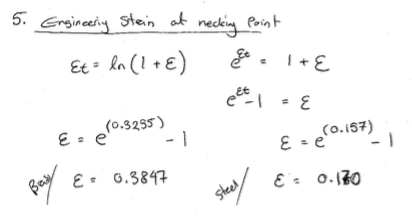 5. Engineering Strain at necking Point
εt = ln(1 + ε)
e^εt = 1 + ε
e^εt - 1 = ε
ε = e^(0.3255) - 1
ε = e^(0.157) - 1
ε = 0.3847
steel/ ε = 0.170